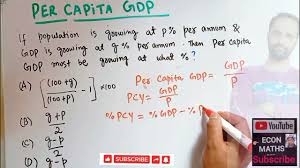 PER CAPITA GDP
If population is growing at p% per annum &
GDP is growing at g% per annum. Then Per Capita
GDP must be growing at what %?
(A) [(100+g)/(100+p) - 1] ×100
(B) g+p/2
(C) g-p/2
Per Capita GDP = GDP/P
PCY = GDP/P
% PCY = % GDP - % P
YouTube
ECON
MATHS
SUBSCRIBE
SUBSCRIBE